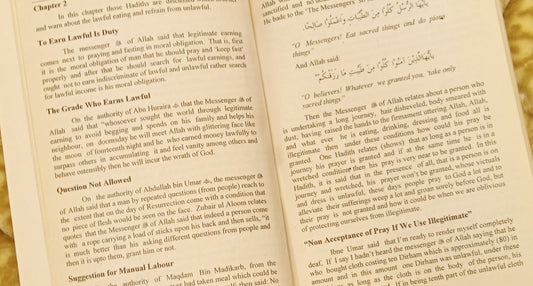 Chapter 2
In this chapter those Hadiths are discussed
and warn about the lawful eating and refrain from unlawful.
To Earn Lawful Is Duty
The messenger ﷺ of Allah said that legitimate earning
comes next to praying and fasting in moral obligation. That is, first
it is the moral obligation of man that he should pray and 'keep fast'
properly and after that he should search for lawful earnings, and
ought not to earn indiscriminate of lawful and unlawful rather search
for lawful income is his moral obligation.
The Grade Who Earns Lawful
On the authority of Abu Huraira that the Messenger ﷺ of
Allah said that "whosoever sought the world through legitimate
earning to avoid begging and spends on his family and helps his
neighbour, on doomsday he will meet Allah with glittering face like
the moon of fourteenth night and he who earned money lawfully to
surpass others in accumulating it and feel vanity among others and
behave ostensibly then will incur the wrath of God.
Question Not Allowed
On the authority of Abdullah bin Umar, the messenger ﷺ
of Allah said that a man by repeated questions (from people) reach to
the extent that on the day of Resurrection come with a condition that
no piece of flesh would be seen on the face. Zubair ul Aloom relates
quotes that the Messenger ﷺ of Allah said that indeed a person come
with a rope carrying a load of sticks upon his back and then sells, "it
is much better than his asking different questions from people and
then it is upto them, grant him or not.
Suggestion for Manual Labour
authority of Maqdam Bin Madikarb, from the
had taken meal which could be
said: No
Allah
sanctified and
He bade to the 'The Messengers
يَا أَيُّهَا الرُّسُلُ كُلُوا مِنَ الطَّيِّبَاتِ وَاعْمَلُوا صَالِحًا
"O Messengers! Eat sacred things and do pious
things"
And Allah said:
يَا أَيُّهَا الَّذِينَ آمَنُوا كُلُوا مِنْ طَيِّبَاتِ مَا رَزَقْنَاكُمْ
"O believers! Whatever we granted you, take only
sacred things"
Then the Messenger ﷺ of Allah relates about a person who
is undertaking a long journey, hair disheveled, body smeared with
dust, having raised his hands to the firmament uttering Allah, Allah,
and what ever he is eating, drinking, dressing and food all is
illegitimate then under these conditions how could his pray be
granted. One Hadith relates (shows) that as long as a person is in
journey his prayer is granted and if at the same time he is in a
wretched condition then his pray is very near to be granted. In this
Hadith, it is said that in the presence of all, that a person is on
journey and wretched, his prayer won't be granted, whose victuals
and dress is unlawful, these days people pray to God a lot and to
alleviate their sufferings weep a lot and groan sorely before God, but
their pray is not granted and how it could be when we are oblivious
of protecting ourselves from illegitimate.
"Non Acceptance of Pray If We Use Illegitimate"
Ibne Umar said that I'm ready to render myself completely
deaf, If I say I hadn't heard the messenger ﷺ of Allah saying that he
who bought cloth costing ten Dirham which is approximately (80) in
amount and in this amount one Dirham was unlawful, under these
as long as the cloth is on the body of the person, his
If being tenth part of the unlawful cloth